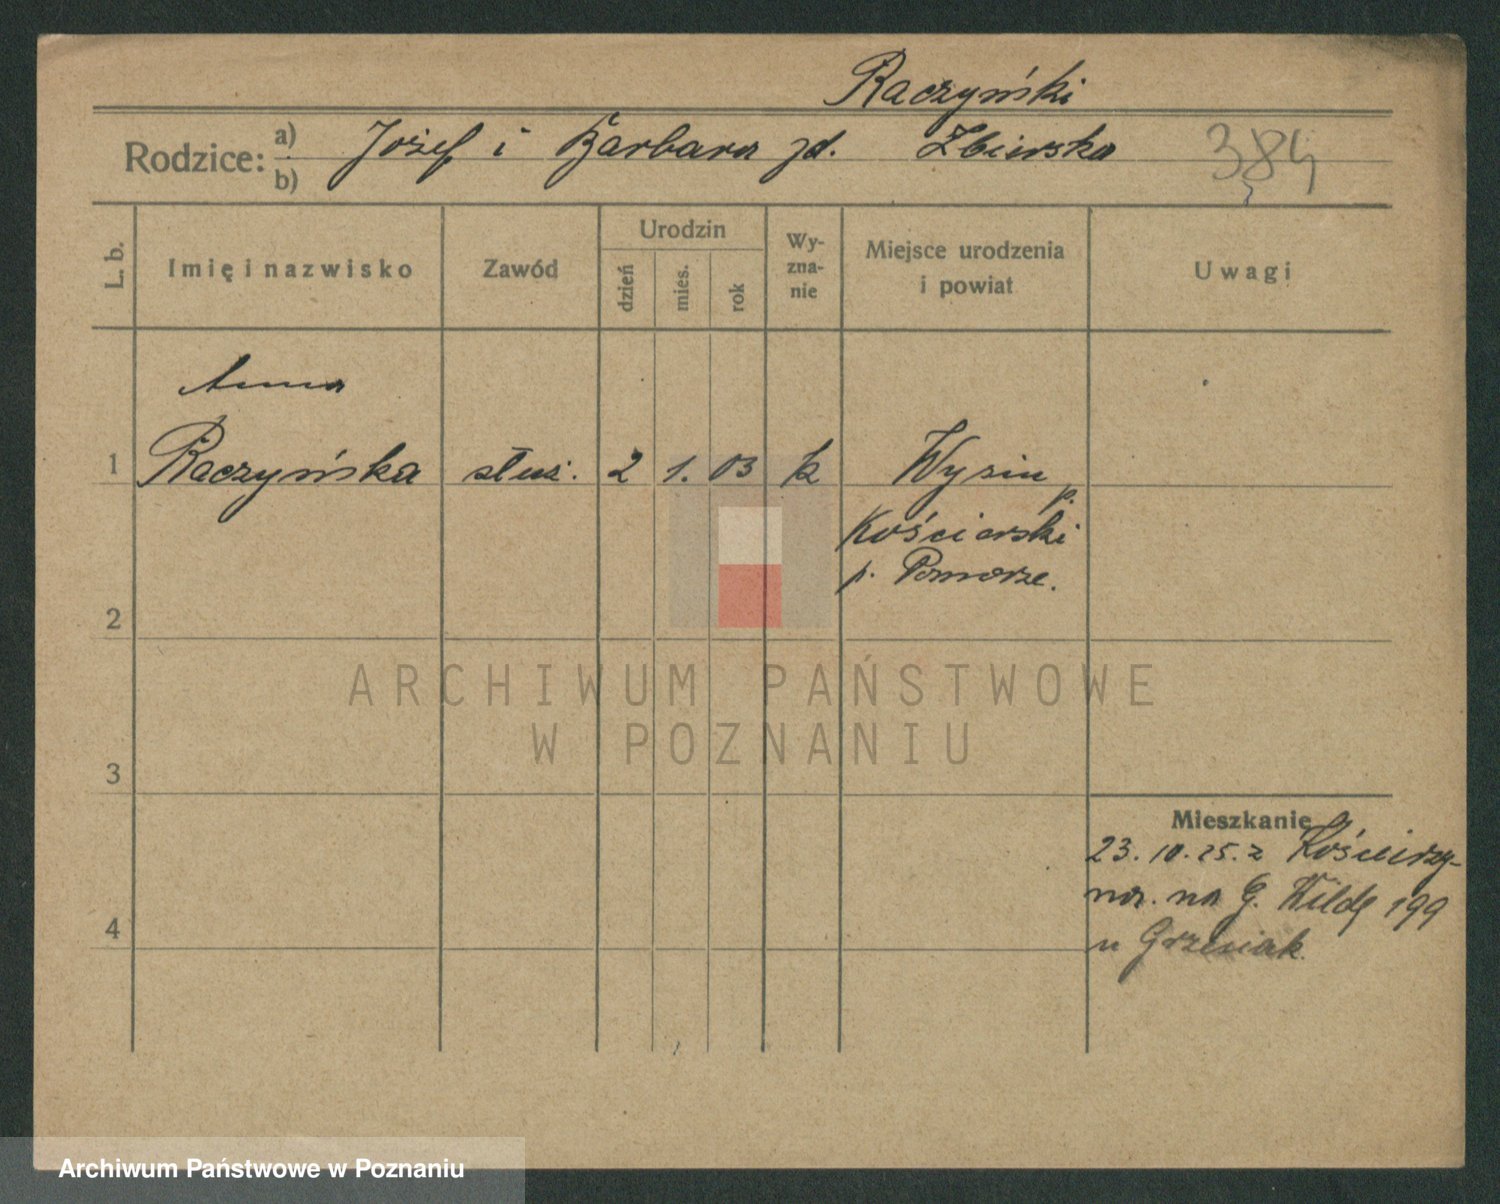 Raczyński
Rodzice: a) Józef i Barbara zd. Zbierska 384
b)
L. b. Imię i nazwisko Zawód Urodzin dzień mies. rok Wy-zna-nie Miejsce urodzenia i powiat Uwagi
Anna
1 Raczyńska służ. 2 1. 03 k Wysin p.
Kościerski
p. Pomorze.
2
ARCHIWUM PAŃSTWOWE
W POZNANIU
3
Mieszkanie
23. 10. 25. z Kościerzy-
na. na G. Wildę 199
4
u Grzesiak.
Archiwum Państwowe w Poznaniu